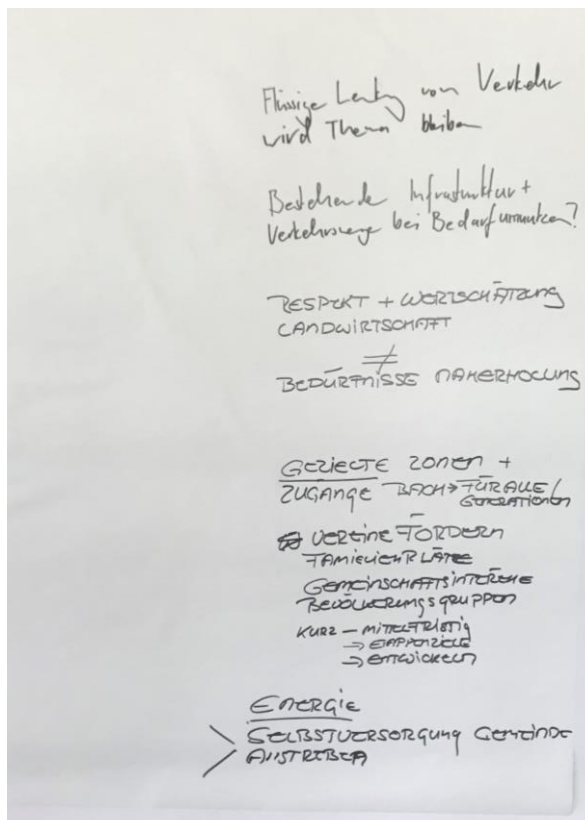 Flüssige Lenkung von Verkehr
wird Thema bleiben
Bestehende Infrastruktur +
Verkehrswege bei Bedarf umnutzen?
RESPEKT + WERTSCHÄTZUNG
LANDWIRTSCHAFT
≠
BEDÜRFNISSE NAHERHOLUNG
GEZIELTE ZONEN +
ZUGÄNGE BACH → FÜR ALLE /
GENERATIONEN
VEREINE FÖRDERN
FAMILIENPLÄTZE
BEVÖLKERUNGSGRUPPEN
KURZ – MITTELFRISTIG
→ ETAPPENZIELE
→ ENTWICKELN
ENERGIE
SELBSTVERSORGUNG GEMEINDE
ANSTREBEN